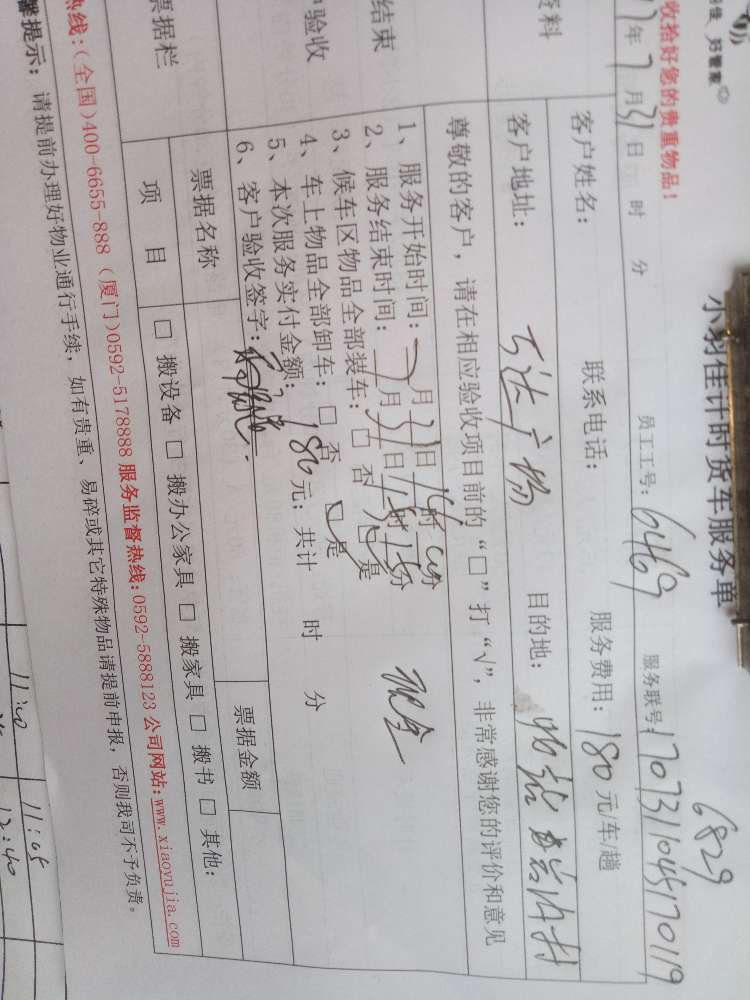 小羽佳计时货车服务单
收拾好您的贵重物品！
6829
年7月31日 时 分 员工工号：6469 服务联号：170731104570119
客户姓名： 联系电话： 服务费用：180元/车/趟
客户地址：万达广场 目的地：
尊敬的客户，请在相应验收项目前的“□”打“√”，非常感谢您的评价和意见
1、服务开始时间：7月31日 时 分
2、服务结束时间：7月31日 时15分
现金
3、候车区物品全部装车：□ 否 □ 是
4、车上物品全部卸车：□ 否 □ 是
5、本次服务实付金额：180元；共计 时 分
6、客户验收签字：
资料
结束
户验收
票据栏
票据名称 票据金额
项 目 □ 搬设备 □ 搬办公家具 □ 搬家具 □ 搬书 □ 其他：
热线：(全国)400-6655-888 (厦门)0592-5178888 服务监督热线：0592-5888123 公司网站：www.xiaoyujia.com
馨提示：请提前办理好物业通行手续，如有贵重、易碎或其它特殊物品请提前申报，否则我司不予负责。
11:00 11:05
12:40